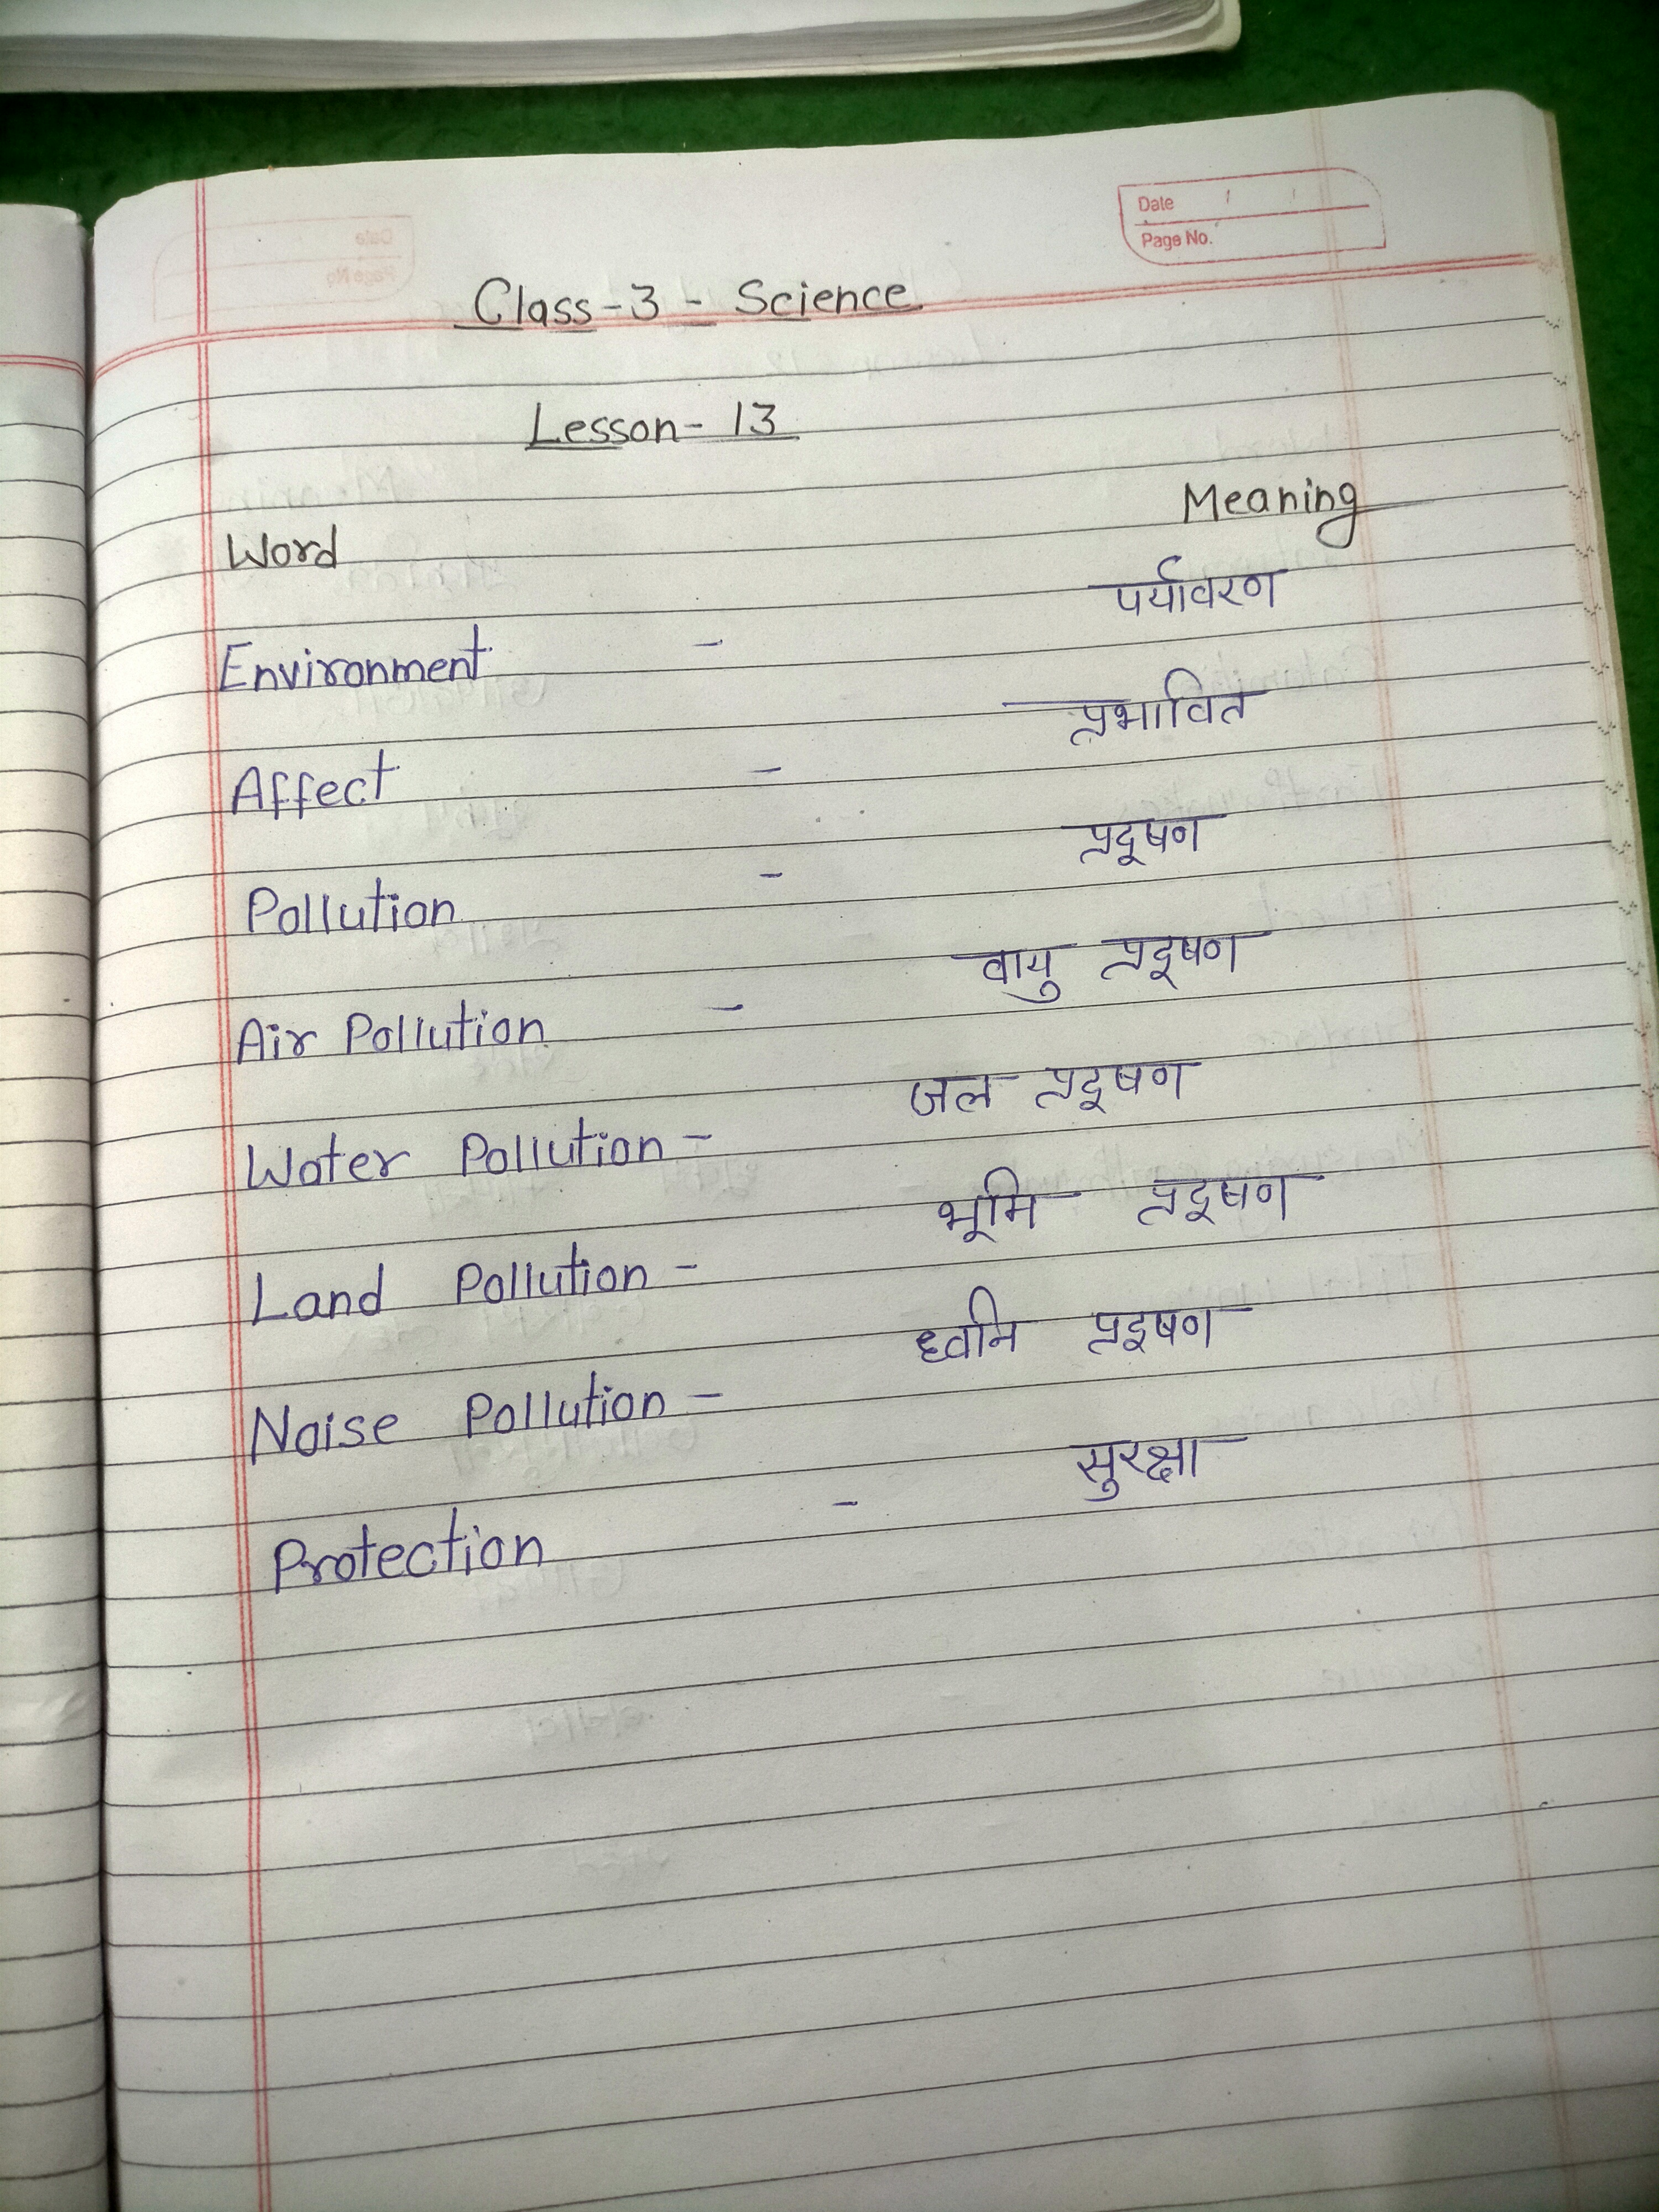 Date
Page No.
Class-3 - Science
Lesson- 13
Word Meaning
Environment - पर्यावरण
Affect - प्रभावित
Pollution - प्रदूषण
Air Pollution - वायु प्रदूषण
Water Pollution - जल प्रदूषण
Land Pollution - भूमि प्रदूषण
Noise Pollution - ध्वनि प्रदूषण
Protection - सुरक्षा